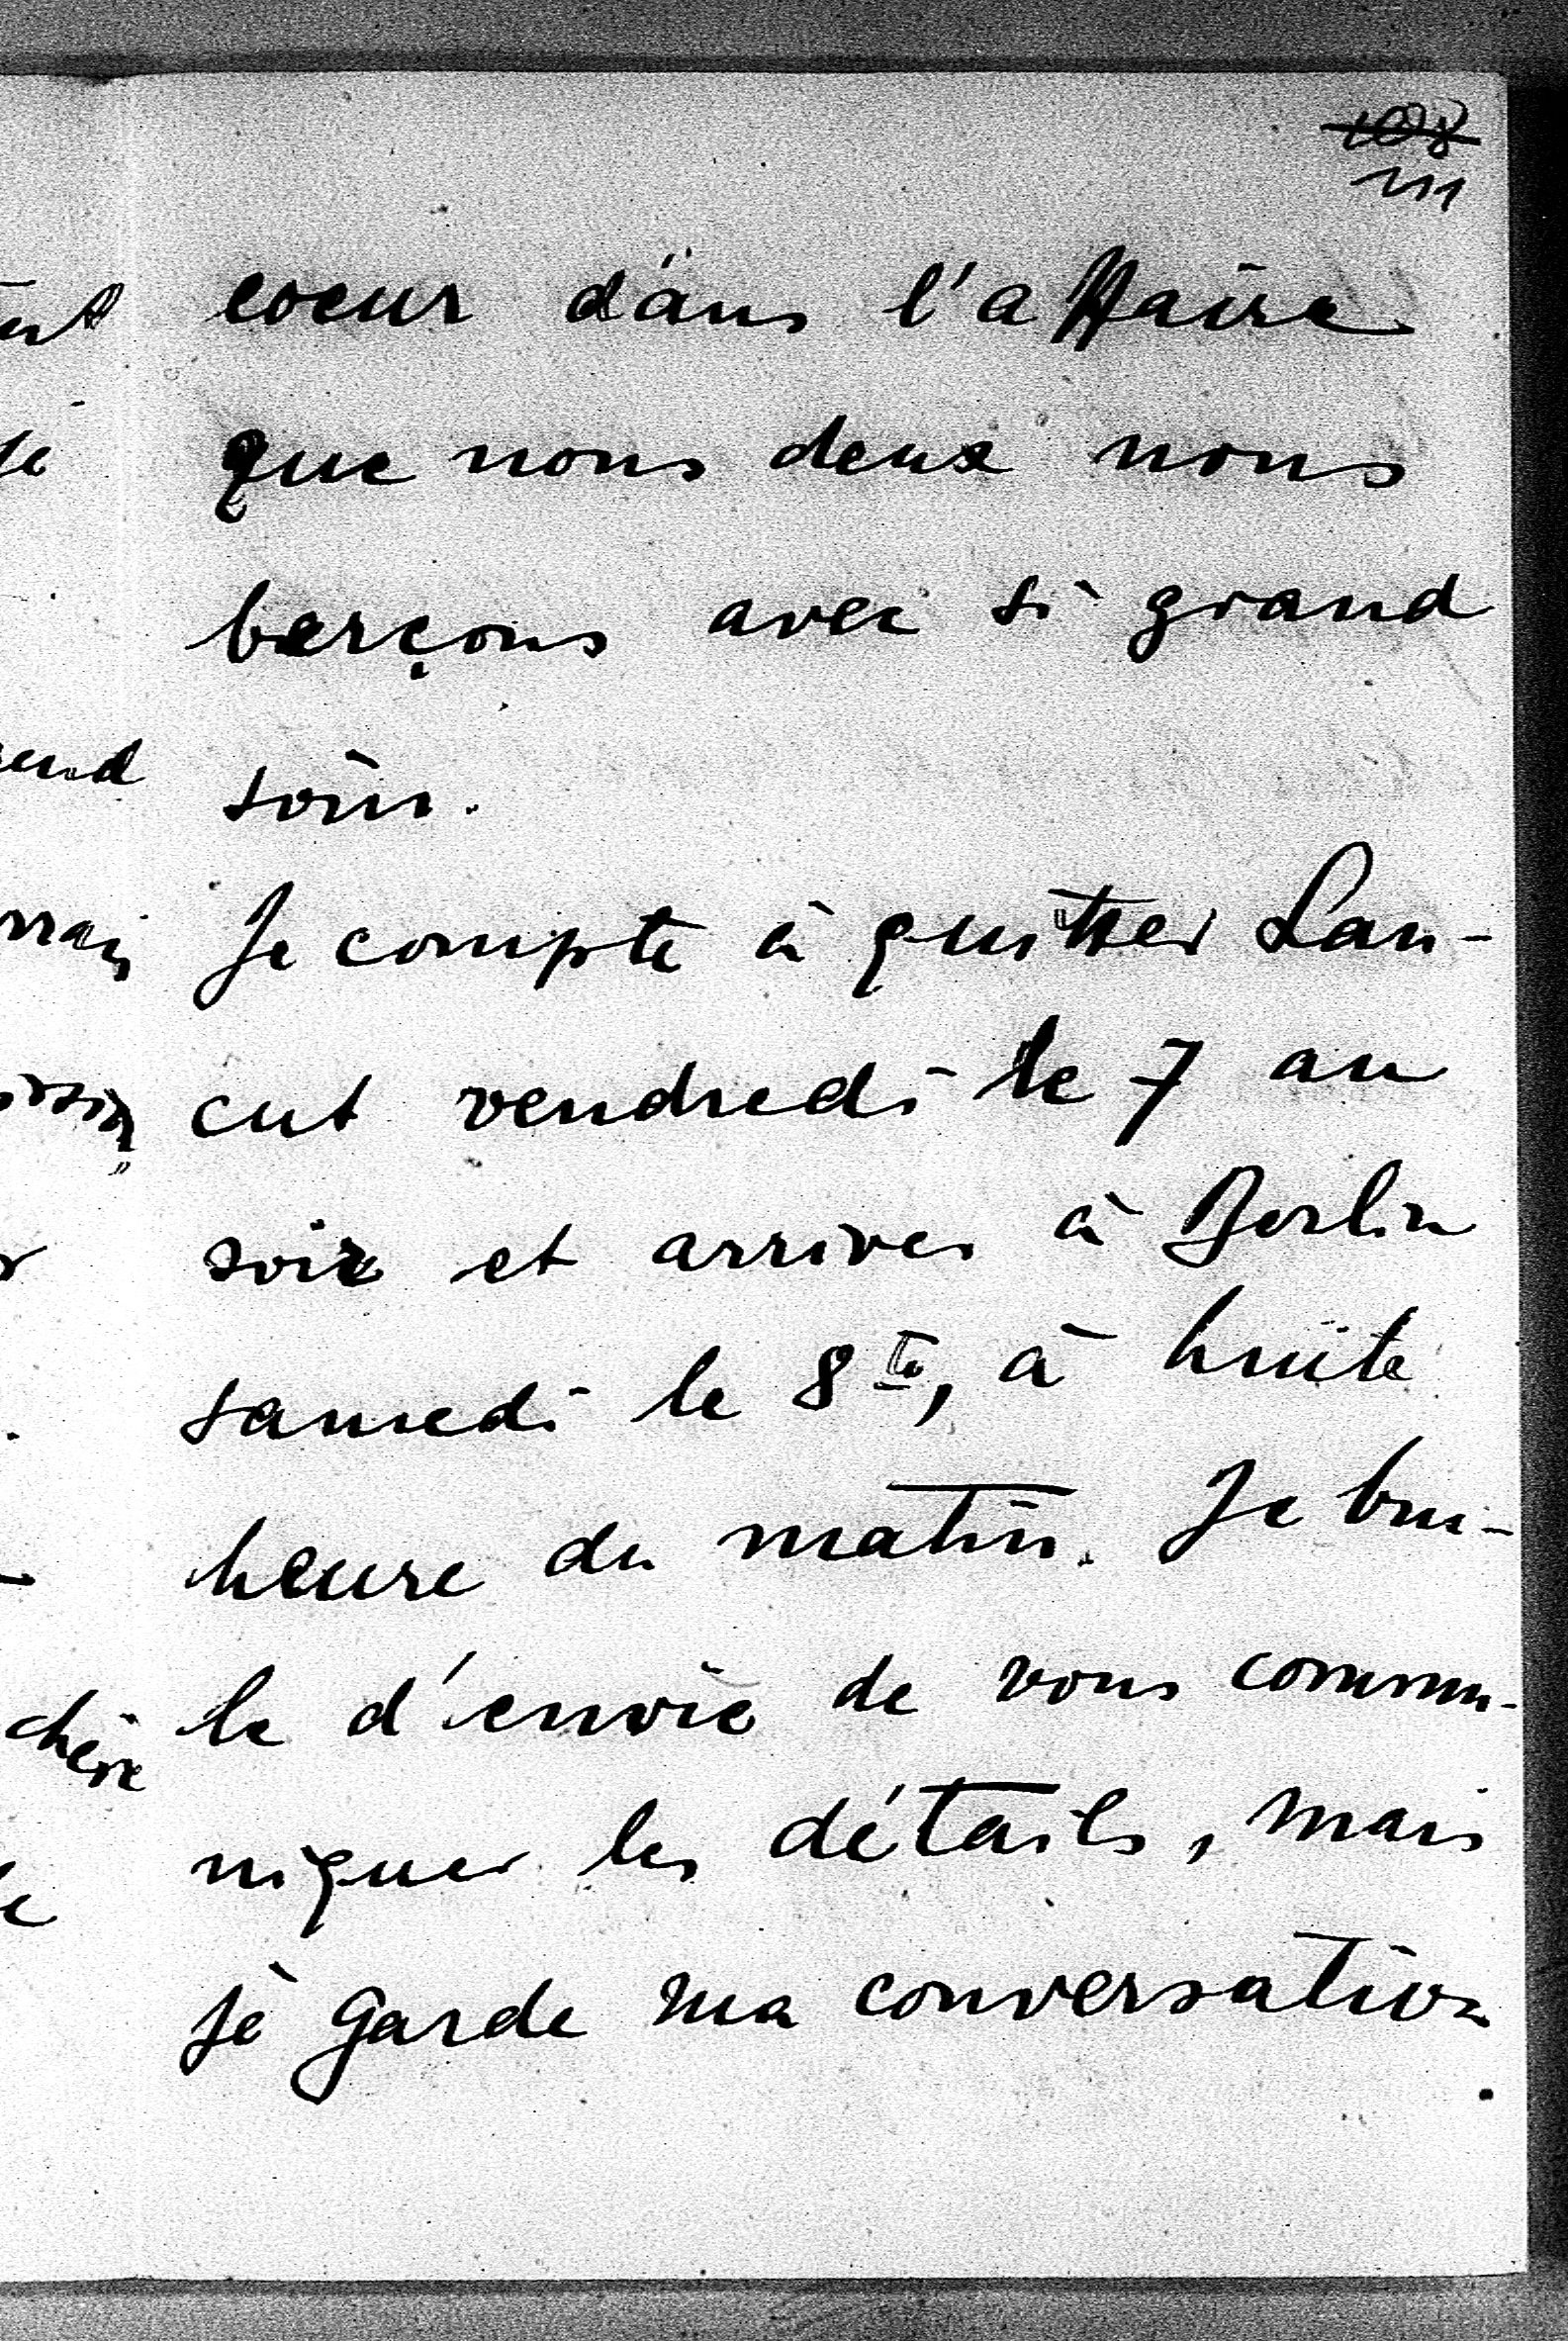 108
111
coeur dans l'affaire
que nous deux nous
berçons avec si grand
soin.
Je compte à quitter Lan-
cut vendredi le 7 au
soir et arriver à Berlin
samedi le 8te, à huite
heure du matin. Je bru-
le d'envie de vous commu-
niquer les détails, mais
je garde ma conversation
chère